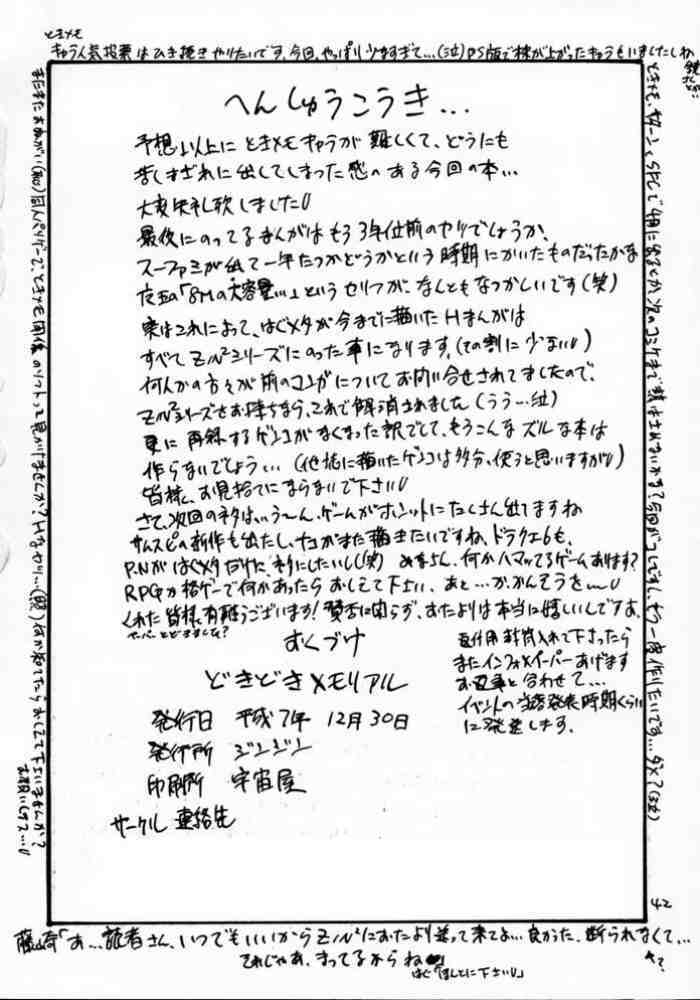 ときメモ
キャラ人気投票はひき続きやりたいです。今回、やっぱり少なすぎて…(泣)PS版で株が上がったキャラもいましたしね
へんしゅうこうき…
予想以上にときメモキャラが難しくて、どうにも
苦しまぎれに出してしまった感のある今回の本…
大変失礼致しました
最後にのってるまんがはもう3年位前のヤツでしょうか、
スーファミが出て一年たつかどうかという時期にかいたものだったかな
「8Mの大容量…」というセリフが、なんともなつかしいです(笑)
実はこれによって、はぐメタが今までに描いたHまんがは
すべてZルシリーズにのった事になります。(その割に少ない)
何人かの方々が前のコレについてお問い合せされてましたので、
シリーズをお持ちなら、これで解消されました(うう…泣)
更に再録するゲンコがなくなった訳でして、もうこんなズルな本は
作らないでしょう…(他誌に描いたゲンコは多分、使うと思いますが)
皆様、お見捨てにならないで下さい
さて、次回のネタは…う~ん、ゲームがホントにたくさん出てますね
サムスピの新作も出たし、ナコがまた描きたいですね、ドラクエ6も、
P.Nがはぐメタだけに、ネタにしたいし(笑) みなさん、何かハマッてるゲームあります?
RPGか格ゲーで何かあったらおしえて下さい、あと…か、かんそうを…
くれた皆様、有難うございます!賛否に関らず、おたよりは本当に嬉しいんですよ。
ペーパーとどきました?
おくづけ
どきどきメモリアル
発行日 平成7年 12月30日
発行所 ジンジン
印刷所 宇宙屋
サークル 連絡先
返信用封筒入れて下さったら
またインフォペーパーあげます
お返事と合わせて…
イベントの当落発表時期くらい
に発送します。
42
またまたおねがい(初)同人ベリゲーで、ときメモ関係のソフトって見かけませんか?Hなヤツ…(照)何か知ってたらおしえて下さいませんか?
お願いします…
藤崎「あ…読者さん、いつでもいいからZルにおたより送って来てよ…良かった、断られなくて…
それじゃあ、まってるからね
はぐ「ほんとに下さい」